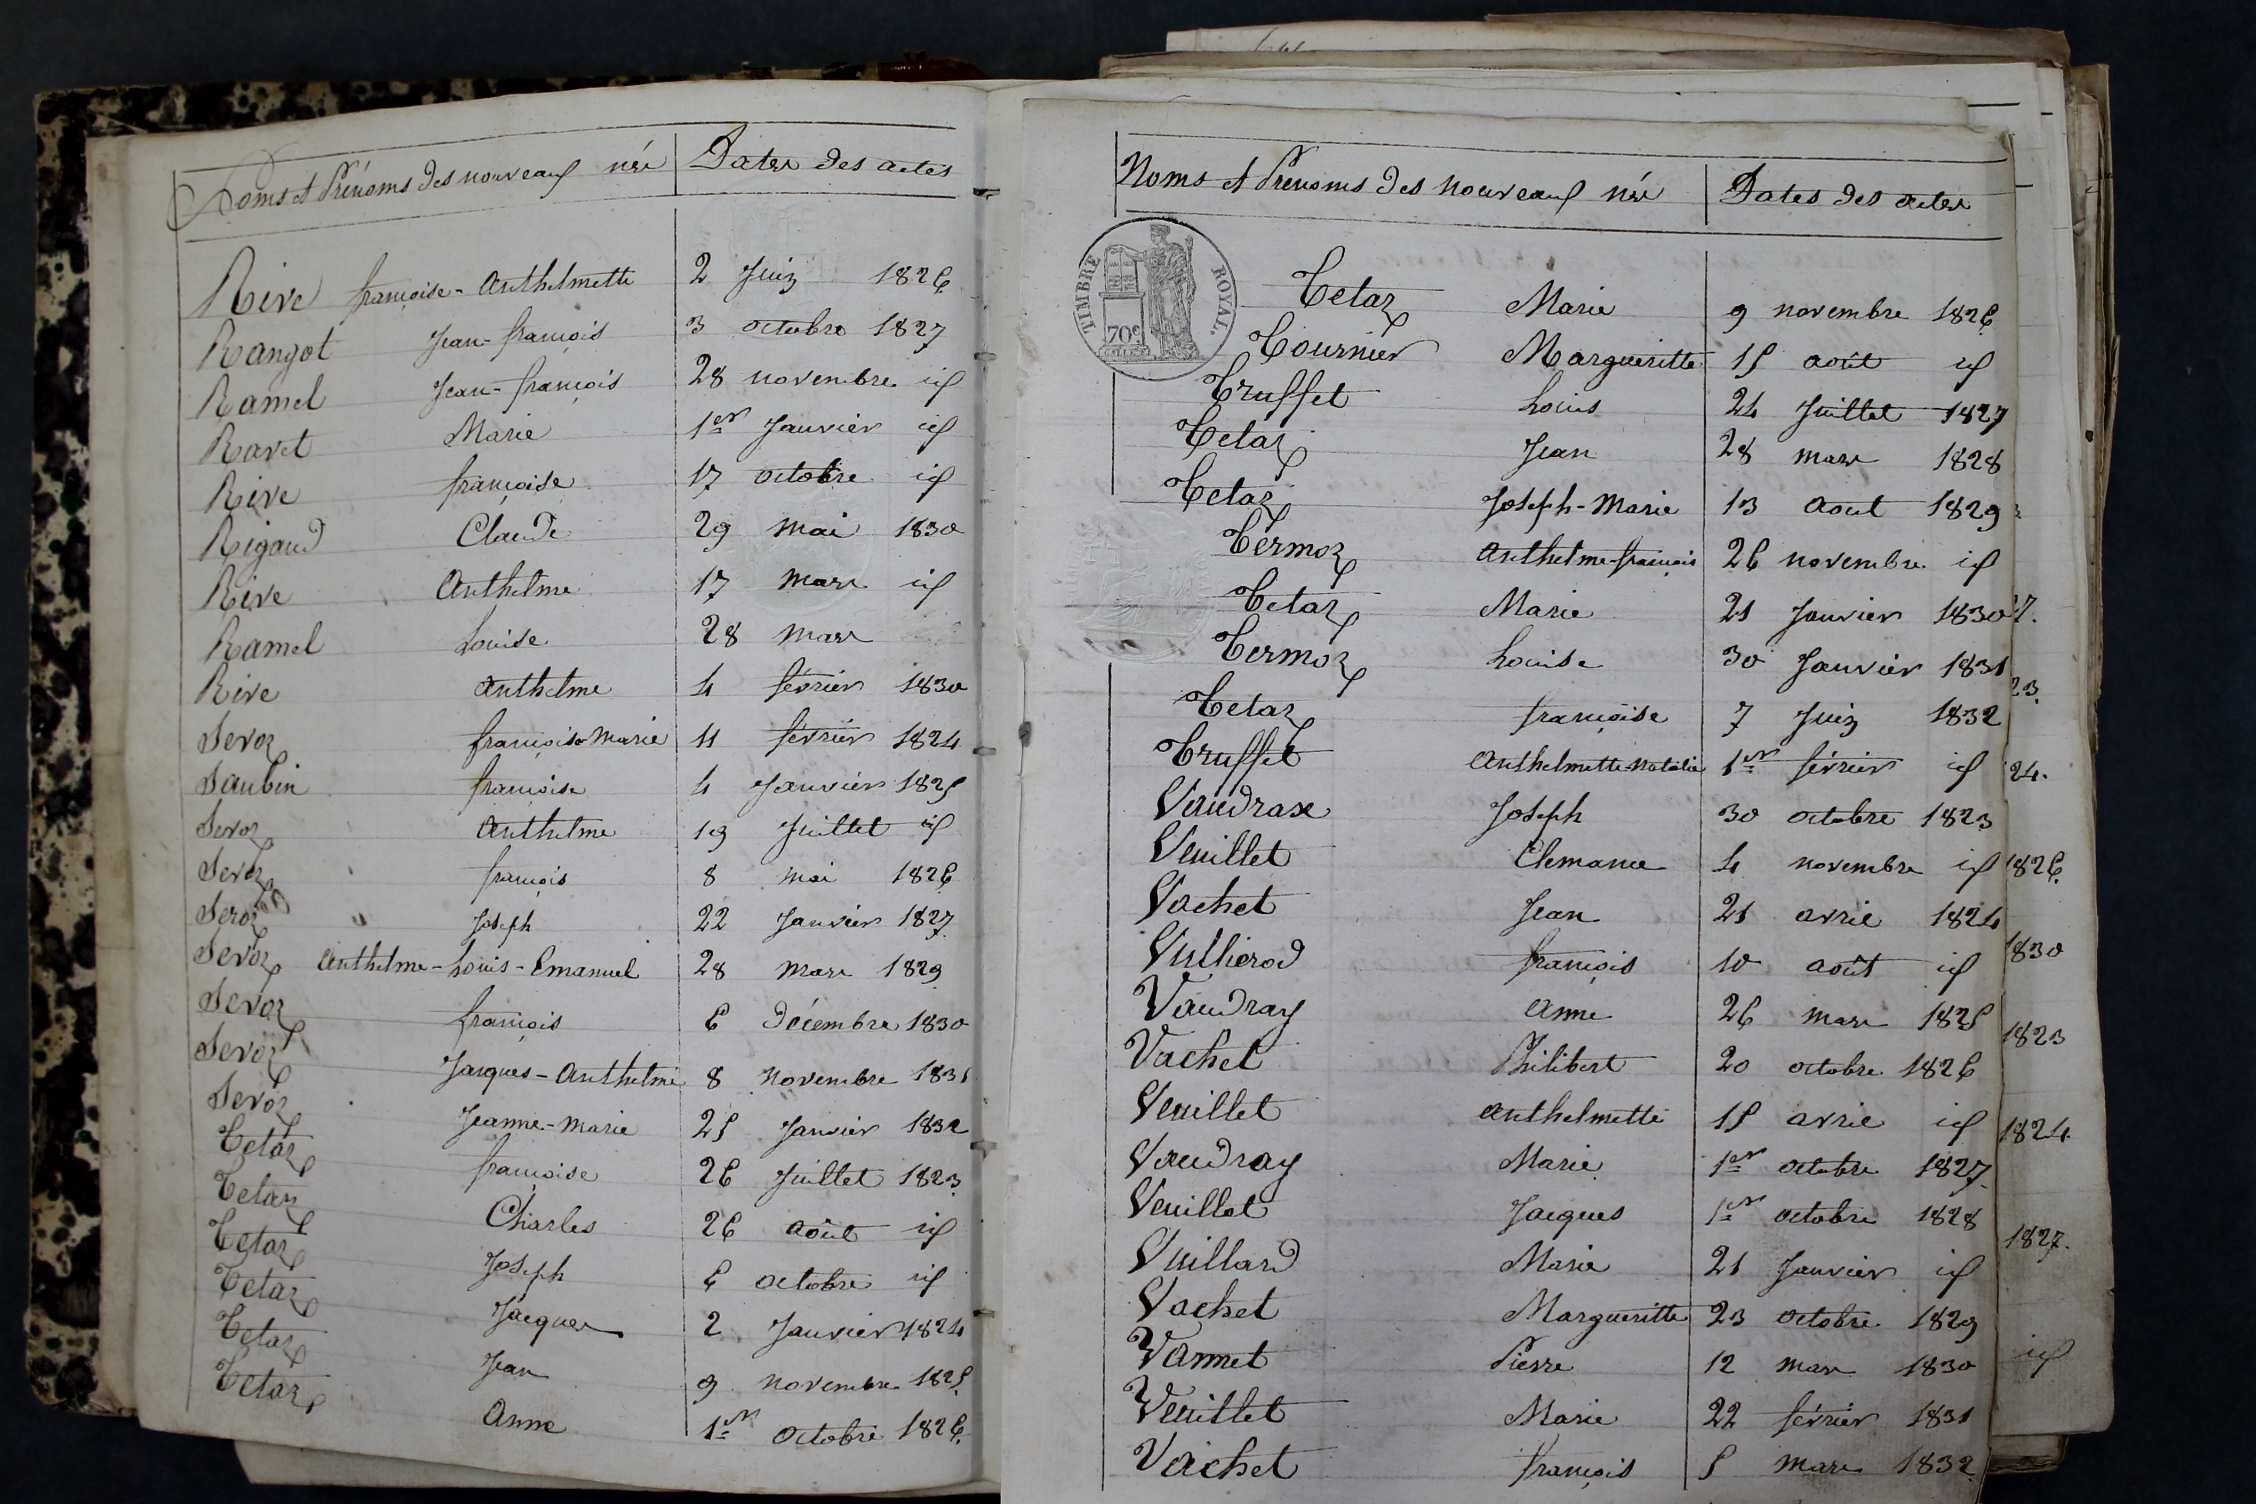 Noms et Prénoms des nouveaux nés Dates des actes
Rive françoise-Anthelmette 2 Juin 1826
Rangot Jean-françois 3 octobre 1827
Ramel Jean-françois 28 novembre id
Ravet Marie 1er Janvier id
Rive françoise 17 octobre id
Rigaud Claude 29 mai 1830
Rive Anthelme 17 mars id
Ramel Louise 28 mars
Rive Anthelme 4 février 1830
Sevoz françoise Marie 11 février 1824
Saubin françoise 4 Janvier 1825
Sevoz Anthelme 19 Juillet id
Sevoz françois 8 mai 1826
Sevoz Joseph 22 Janvier 1827
Sevoz Anthelme-Louis-Emanuel 28 mars 1829
Sevoz françois 6 Décembre 1830
Sevoz Jacques-Anthelme 8 novembre 1831
Sevoz Jeanne-Marie 25 Janvier 1832
Tetaz françoise 26 Juillet 1823
Tetaz Charles 26 août id
Tetaz Joseph 6 octobre id
Tetaz Jacques 2 Janvier 1824
Tetaz Jean 9 novembre 1825
Tetaz Anne 1er octobre 1826
Noms et Prénoms des nouveaux nés Dates des actes
TIMBRE ROYAL.
70c
Tetaz Marie 9 novembre 1826
Tournier Margueritte 15 août id
Truffet Louis 24 Juillet 1827
Tetaz Jean 28 mars 1828
Tetaz Joseph-Marie 13 aout 1829
Termoz Anthelme-françois 26 novembre id
Tetaz Marie 21 Janvier 1830
Termoz Louise 30 Janvier 1831
Tetaz françoise 7 Juin 1832
Truffet Anthelmette-Natalie 1er février id
Vaudrax Joseph 30 octobre 1823
Veuillet Clemance 4 novembre id
Vachet Jean 21 avril 1824
Vulliérod françois 10 août id
Vaudray Anne 26 mars 1825
Vachet Philibert 20 octobre 1826
Veuillet Anthelmette 15 avril id
Vaudray Marie 1er octobre 1827
Veuillet Jacques 1er octobre 1828
Vuillard Marie 21 Janvier id
Vachet Margueritte 23 octobre 1829
Vannet Pierre 12 mars 1830
Veuillet Marie 22 février 1831
Vachet françois 5 mars 1832
27.
23.
24.
1826
1830
1823
1824
1827.
id